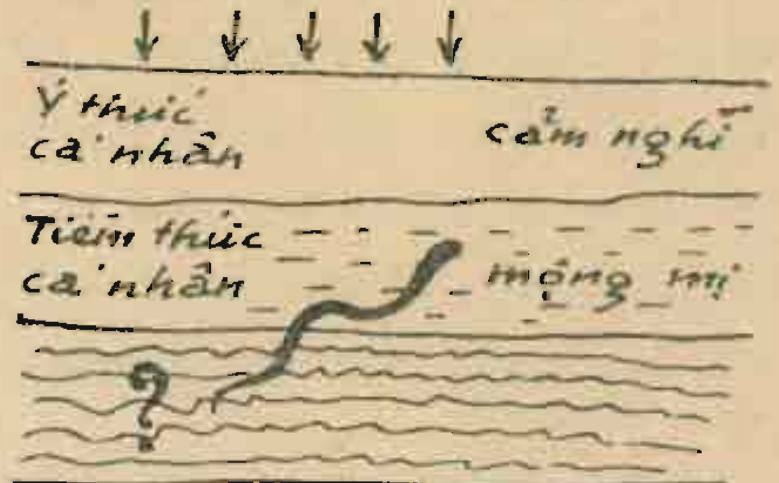 Ý thức
cá nhân
cảm nghĩ
Tiềm thức
cá nhân
mộng mị
?